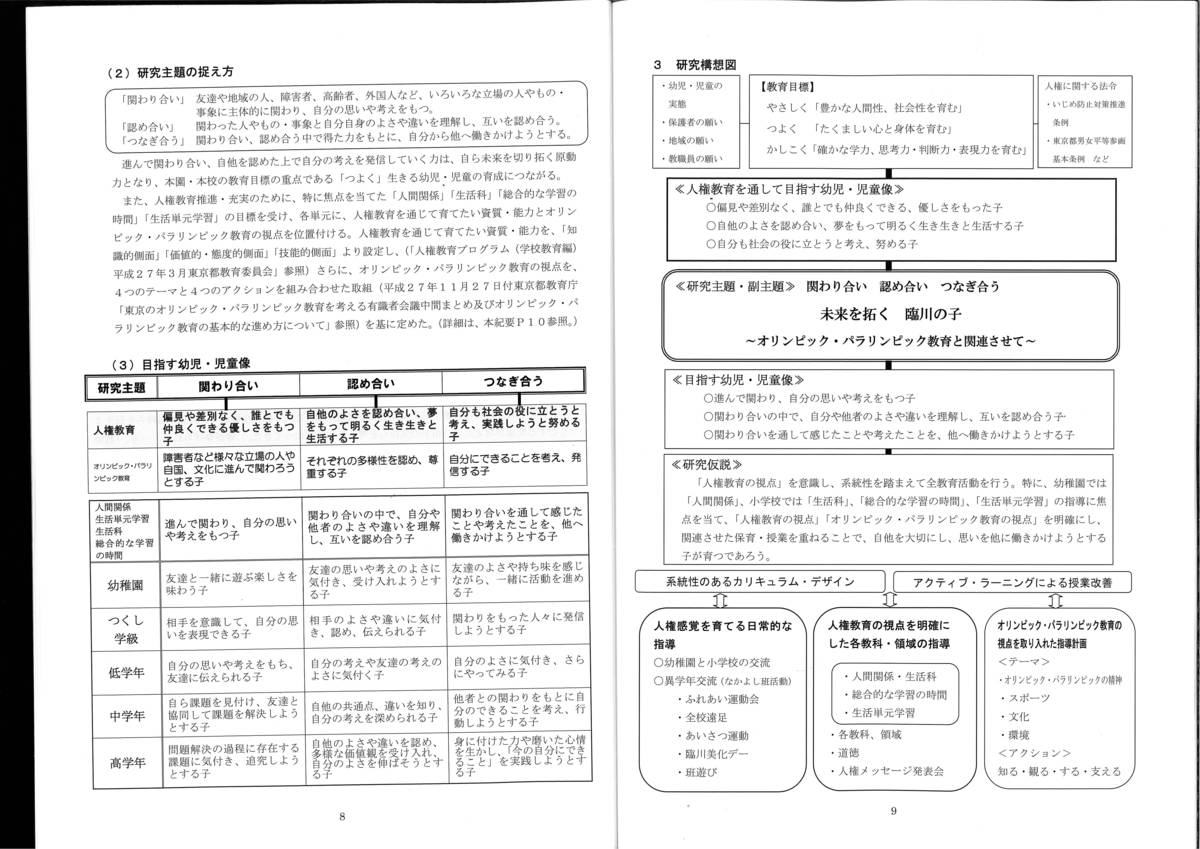 (2)研究主題の捉え方
「関わり合い」 友達や地域の人、障害者、高齢者、外国人など、いろいろな立場の人やもの・
事象に主体的に関わり、自分の思いや考えをもつ。
「認め合い」 関わった人やもの・事象と自分自身のよさや違いを理解し、互いを認め合う。
「つなぎ合う」 関わり合い、認め合う中で得た力をもとに、自分から他へ働きかけようとする。
進んで関わり、自他を認めた上で自分の考えを発信していく力は、自ら未来を切り拓く原動
力となり、本園・本校の教育目標の重点である「つよく」生きる幼児・児童の育成につながる。
また、人権教育推進・充実のために、特に焦点を当てた「人間関係」「生活科」「総合的な学習の
時間」「生活単元学習」の目標を受け、各単元に、人権教育を通じて育てたい資質・能力とオリン
ピック・パラリンピック教育の視点を位置付ける。人権教育を通じて育てたい資質・能力を、「知
識的側面」「価値的・態度的側面」「技能的側面」より設定し、(「人権教育プログラム(学校教育編)
平成27年3月東京都教育委員会」参照)さらに、オリンピック・パラリンピック教育の視点を、
4つのテーマと4つのアクションを組み合わせた取組(平成27年11月27日付東京都教育庁
「東京のオリンピック・パラリンピック教育を考える有識者会議中間まとめ及びオリンピック・パ
ラリンピック教育の基本的な進め方について」参照)を基に定めた。(詳細は、本紀要P10参照。)
(3)目指す幼児・児童像
研究主題 関わり合い 認め合い つなぎ合う
人権教育
偏見や差別なく、誰とでも
仲良くできる優しさをもつ
子
自他のよさを認め合い、夢
をもって明るく生き生きと
生活する子
自分も社会の役に立とうと
考え、実践しようと努める
子
オリンピック・パラリ
ンピック教育
障害者など様々な立場の人や
自国、文化に進んで関わろう
とする子
それぞれの多様性を認め、尊
重する子
自分にできることを考え、発
信する子
人間関係
生活単元学習
生活科
総合的な学習
の時間
進んで関わり、自分の思い
や考えをもつ子
関わり合いの中で、自分や
他者のよさや違いを理解
し、互いを認め合う子
関わり合いを通して感じた
ことや考えたことを、他へ
働きかけようとする子
幼稚園
友達と一緒に遊ぶ楽しさを
味わう子
友達の思いや考えのよさに
気付き、受け入れようとす
る子
友達のよさや持ち味を感じ
ながら、一緒に活動を進め
る子
つくし
学級
相手を意識して、自分の思
いを表現できる子
相手のよさや違いに気付
き、認め、伝えられる子
関わりをもった人々に発信
しようとする子
低学年
自分の思いや考えをもち、
友達に伝えられる子
自分の考えや友達の考えの
よさに気付く子
自分のよさに気付き、さら
にやってみる子
中学年
自ら課題を見付け、友達と
協同して課題を解決しよう
とする子
自他の共通点、違いを知り、
自分の考えを深められる子
他者との関わりをもとに自
分のできることを考え、行
動しようとする子
高学年
問題解決の過程に存在する
課題に気付き、追究しよう
とする子
自他のよさや違いを認め、
多様な価値観を受け入れ、
自分のよさを伸ばそうとす
る子
身に付けた力や磨いた心情
を生かし、「今の自分にでき
ること」を実践しようとす
る子
8
3 研究構想図
・幼児・児童の
実態
・保護者の願い
・地域の願い
・教職員の願い
【教育目標】
やさしく「豊かな人間性、社会性を育む」
つよく 「たくましい心と身体を育む」
かしこく「確かな学力、思考力・判断力・表現力を育む」
人権に関する法令
・いじめ防止対策推進
条例
・東京都男女平等参画
基本条例 など
≪人権教育を通して目指す幼児・児童像≫
○偏見や差別なく、誰とでも仲良くできる、優しさをもった子
○自他のよさを認め合い、夢をもって明るく生き生きと生活する子
○自分も社会の役に立とうと考え、努める子
≪研究主題・副主題≫ 関わり合い 認め合い つなぎ合う
未来を拓く 臨川の子
~オリンピック・パラリンピック教育と関連させて~
≪目指す幼児・児童像≫
○進んで関わり、自分の思いや考えをもつ子
○関わり合いの中で、自分や他者のよさや違いを理解し、互いを認め合う子
○関わり合いを通して感じたことや考えたことを、他へ働きかけようとする子
≪研究仮説≫
「人権教育の視点」を意識し、系統性を踏まえて全教育活動を行う。特に、幼稚園では
「人間関係」、小学校では「生活科」、「総合的な学習の時間」、「生活単元学習」の指導に焦
点を当て、「人権教育の視点」「オリンピック・パラリンピック教育の視点」を明確にし、
関連させた保育・授業を重ねることで、自他を大切にし、思いを他に働きかけようとする
子が育つであろう。
系統性のあるカリキュラム・デザイン
アクティブ・ラーニングによる授業改善
人権感覚を育てる日常的な
指導
○幼稚園と小学校の交流
○異学年交流(なかよし班活動)
・ふれあい運動会
・全校遠足
・あいさつ運動
・臨川美化デー
・班遊び
人権教育の視点を明確に
した各教科・領域の指導
・人間関係・生活科
・総合的な学習の時間
・生活単元学習
・各教科、領域
・道徳
・人権メッセージ発表会
オリンピック・パラリンピック教育の
視点を取り入れた指導計画
<テーマ>
・オリンピック・パラリンピックの精神
・スポーツ
・文化
・環境
<アクション>
知る・観る・する・支える
9